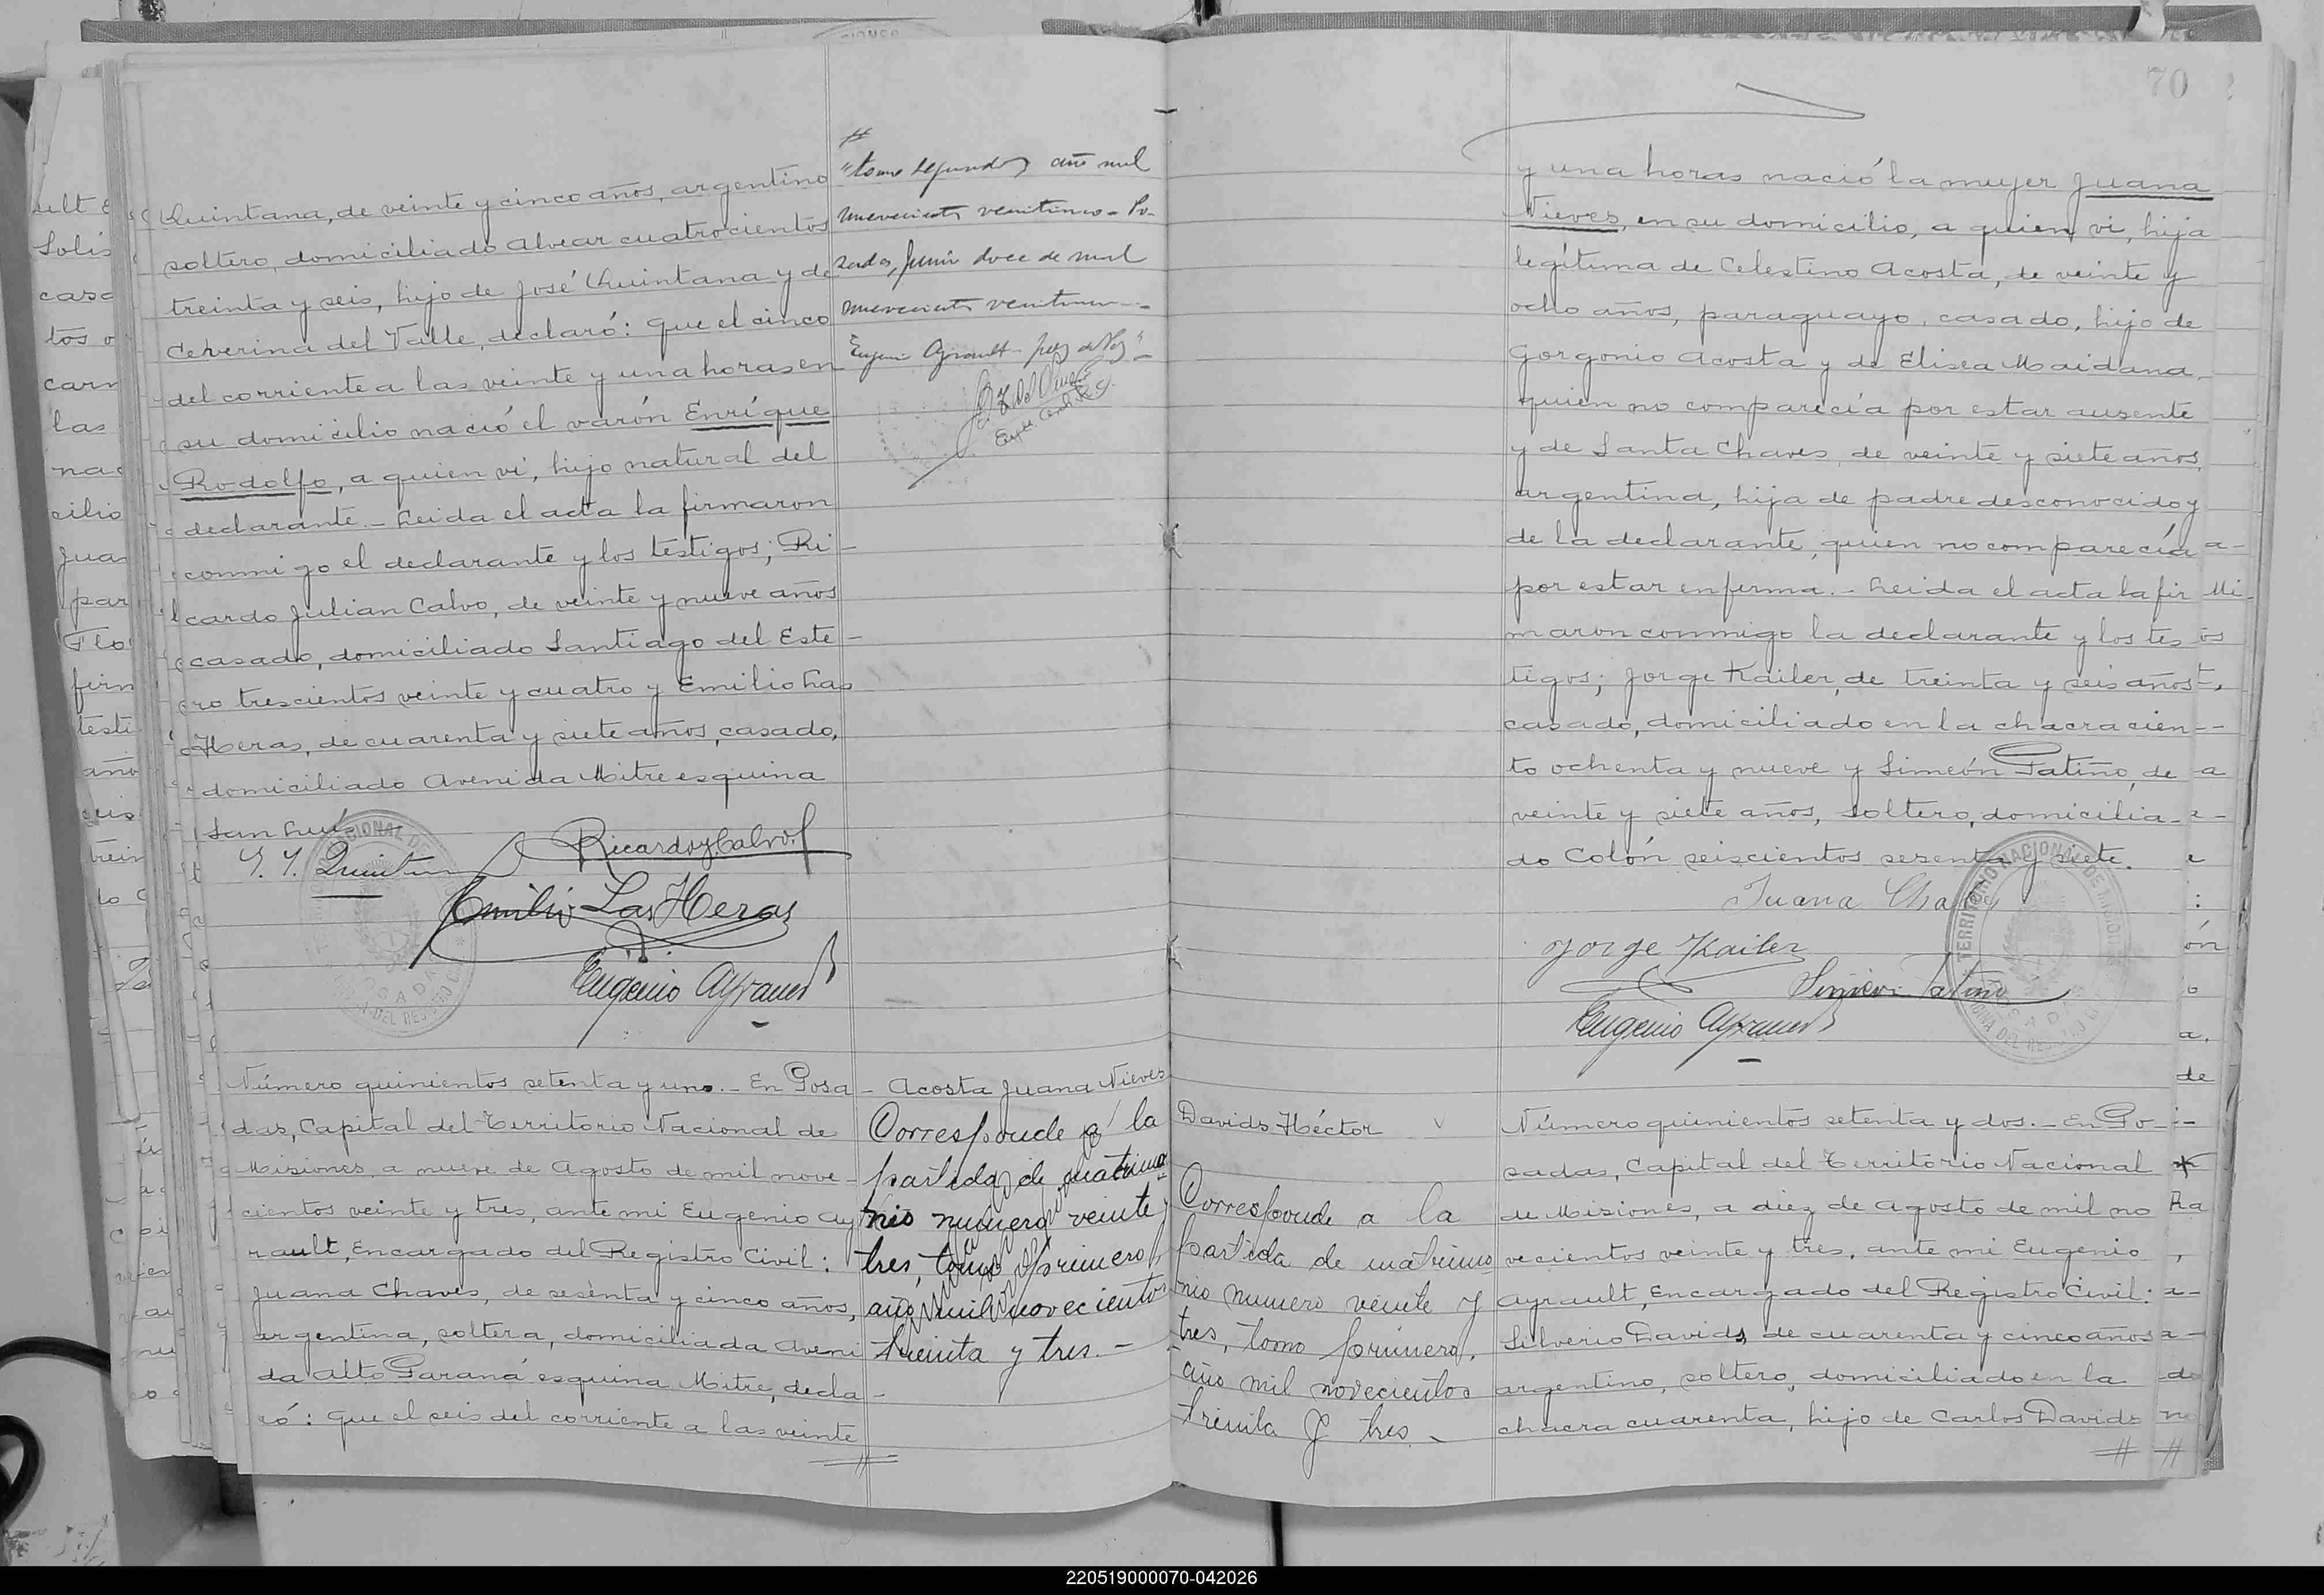 Quintana, de veinte y cinco años, argentino
soltero, domiciliado Alvear cuatrocientos
treinta y seis, hijo de José Quintana y de
Ceverina del Valle, declaró: Que el cinco
del corriente a las veinte y una horas en
su domicilio nació el varón Enrique
Rodolfo, a quien vi, hijo natural del
declarante.- Leida el acta la firmaron
conmigo el declarante y los testigos; Ri-
cardo Julian Calvo, de veinte y nueve años
casado, domiciliado Santiago del Este-
ro trescientos veinte y cuatro y Emilio Las
Heras, de cuarenta y siete años, casado,
domiciliado Avenida Mitre esquina
San Luis
Ricardo J Calvo
Emilio Las Heras
Eugenio Ayrault
"tomo segundo, año mil
novecientos veinticinco - Po-
sadas, Junio doce de mil
novecientos veinticinco -
Eugenio Ayrault - Juez de Paz" -
Número quinientos setenta y uno.- En Posa-
das, Capital del Territorio Nacional de
Misiones, a nueve de Agosto de mil nove-
cientos veinte y tres, ante mi Eugenio Ay
rault, Encargado del Registro Civil:
Juana Chaves, de sesenta y cinco años,
argentina, soltera, domiciliada Aveni
da Alto Paraná esquina Mitre, decla-
ró: Que el seis del corriente a las veinte
Acosta Juana Nieves
Corresponde a la
partida de matrimo
nio numero veinte y
tres, tomo primero,
año mil novecientos
treinta y tres.-
70
y una horas nació la mujer Juana
Nieves, en su domicilio, a quien vi, hija
legítima de Celestino Acosta, de veinte y
ocho años, paraguayo, casado, hijo de
Gorgonio Acosta y de Elisea Maidana,
quien no comparecía por estar ausente
y de Santa Chaves, de veinte y siete años,
argentina, hija de padre desconocido y
de la declarante, quien no comparecía
por estar enferma.- Leida el acta la fir
maron conmigo la declarante y los tes
tigos; Jorge Kailer, de treinta y seis años
casado, domiciliado en la chacra cien-
to ochenta y nueve y Simeón Patiño, de
veinte y siete años, soltero, domicilia-
do Colón seiscientos sesenta y siete.
Juana Chaves
Jorge Kailer
Simeon Patiño
Eugenio Ayrault
TERRITORIO NACIONAL DE MISIONES
POSADAS
Davids Héctor
Corresponde a la
partida de matrimo
nio numero veinte y
tres, tomo primero,
año mil novecientos
treinta y tres.-
Número quinientos setenta y dos.- En Po-
sadas, Capital del Territorio Nacional
de Misiones, a diez de Agosto de mil no
vecientos veinte y tres, ante mi Eugenio
Ayrault, Encargado del Registro Civil:
Silverio Davids, de cuarenta y cinco años
argentino, soltero, domiciliado en la
chacra cuarenta, hijo de Carlos Davids
220519000070-042026